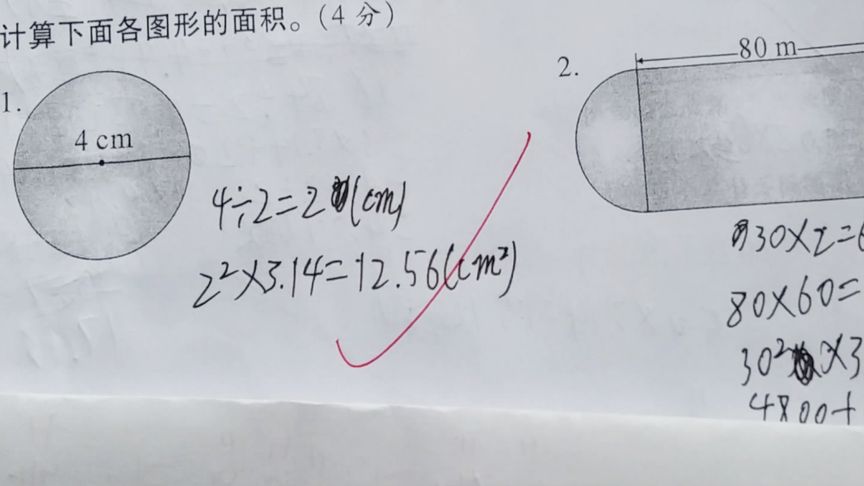 计算下面各图形的面积。(4分)
1.
4 cm
4÷2=2(cm)
2²×3.14=12.56(cm²)
2.
80 m
30×2=6
80×60=
30²×3
4800+